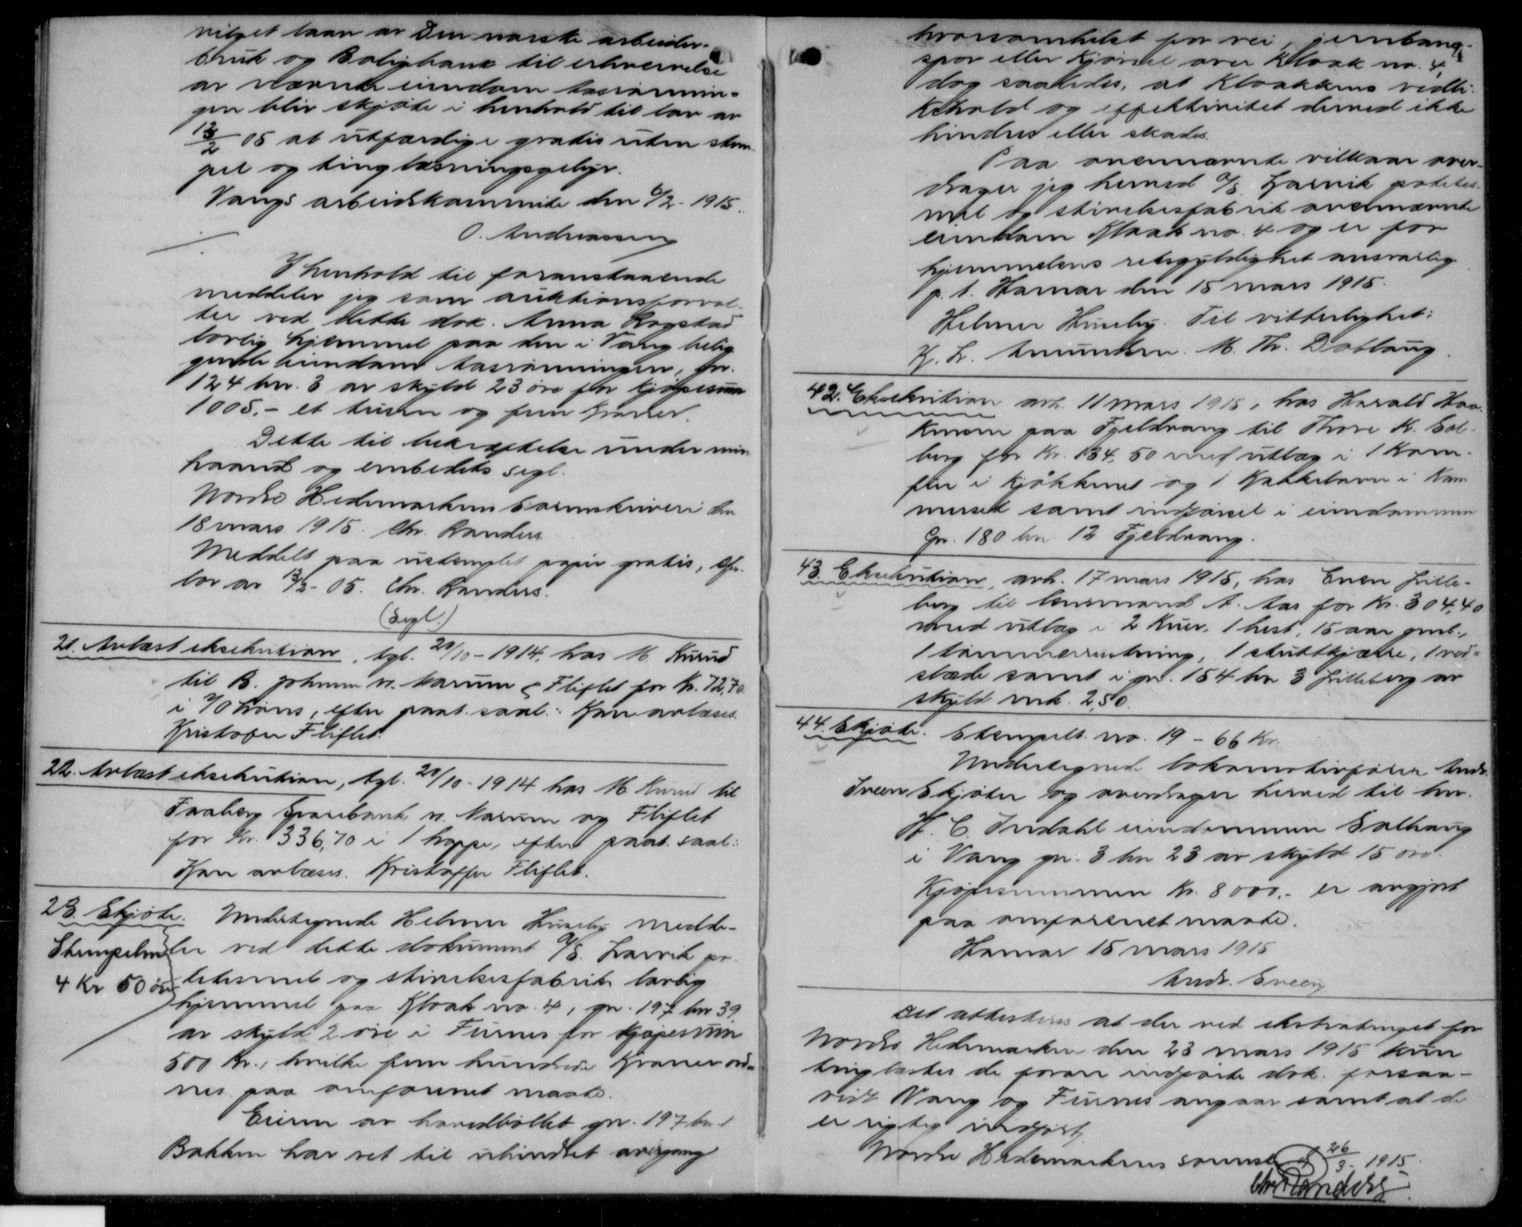 vilget laan av Den norske arbeider-
bruk og Boligbank til erhvervelse
av nævnte eiendom
gen blir skjøte i henhold til lov av
13/2 05 at utfærdige gratis uten stem
pel og tinglæsningsgebyr.
Vangs arbeidskommite den 6/2 - 1915.
O. Andreassen
I henhold til foranstaaende
meddeler jeg som auktionsforval-
ter ved dette dok. Anna Rogstad
lovlig hjemmel paa den i Vang belig
gende eiendom Aasrønningen, gn.
124 bn. 3 av skyld 23 øre for kjøpesum
1005,- et tusen og fem kroner.
Dette til bekræftelse under min
haand og embedets segl.
Nordre Hedemarkens Sorenskriveri den
18 mars 1915. Chr. Randers
Meddelt paa ustemplet papir gratis, cfr.
lov av 13/2 - 05. Chr. Randers.
(Segl.)
21. Avlæst eksekution, tgl. 20/10 - 1914, hos M Kurud
til B. Johnsen v. Narum & Fliflet for Kr. 72,70
i 10 høns, efter paat. saal.: Kan avlæses.
Kristofer Fliflet.
22. Avlæst eksekution, tgl. 20/10 - 1914 hos M Kurud til
Faaberg Sparebank v. Narum og Fliflet
for Kr. 336,70 i 1 hoppe, efter paat. saal.:
Kan avlæses. Kristoffer Fliflet.
23. Skjøte. Undertegnede Helmer Huseby medde-
Stempelm. ler ved dette dokument A/S. Larvik po-
4 Kr 50 øre tetesmel og stivelsesfabrik lovlig
hjemmel paa Kloak no. 4, gn. 197 bn 39
av skyld 2 øre i Furnes for kjøpesum
500 Kr., hvilke fem hundrede Kroner ord-
nes paa omforenet maate.
Eieren av hovedbøllet gn. 197 bn 1
Bakken har ret til uhindret overgang
hvorsomhelst for vei, jernbane-
spor eller kjørsel over Kloak no. 4,
dog saaledes, at kloakkens vedli-
kehold og effektivitet derved ikke
hindres eller skades.
Paa ovennævnte vilkaar over-
drager jeg herved A/S. Larvik potetes-
mel og stivelsesfabrik ovennævnte
eiendom Kloak no. 4 og er for
hjemmelens retsgyldighet ansvarlig
p. t. Hamar den 15 mars 1915.
Helmer Huseby. Til vitterlighet:
K. L. Amundsen. M. Th. Dobloug.
42. Eksekution avh. 11 mars 1915, hos Harald Haa-
kensen paa Fjeldvang til Thore K. Sol-
berg for Kr. 134,50 med utlæg i 1 Kom-
fur i kjøkkenet og 1 Kakkelovn i Kam
merset samt indførsel i eiendommen
Gn. 180 bn 12 Fjeldvang.
43. Eksekution, avh. 17 mars 1915, hos Even Lille-
berg til lensmand A. Aas for Kr. 304,40
med utlæg i 2 Kuer, 1 hest, 15 aar gml.,
1 tømmerrustning, 1 stuttkjærre, 1 ved-
slæde samt i gn. 154 bn 3 Lilleberg av
skyld mrk. 2,50.
44. Skjøte. Stempelt. no. 19 - 66 Kr.
Undertegnede lokomotivfører Andr.
Sveen Skjøter og overdrager herved til hr.
H. C. Indahl eiendommen Solhaug
i Vang gn. 3 bn 23 av skyld 15 øre.
Kjøpesummen Kr. 8000,- er avgjort
paa omforenet maate.
Hamar 15 mars 1915
Andr. Sveen
Det attesteres at der ved ekstratinget for
Nordre Hedemarken den 23 mars 1915 kun
tinglæstes de foran indførte dok. forsaa-
vidt Vang og Furnes angaar samt at de
er rigtig indført.
Nordre Hedemarkens sorenskr. 26/3 - 1915.
Chr. Randers.